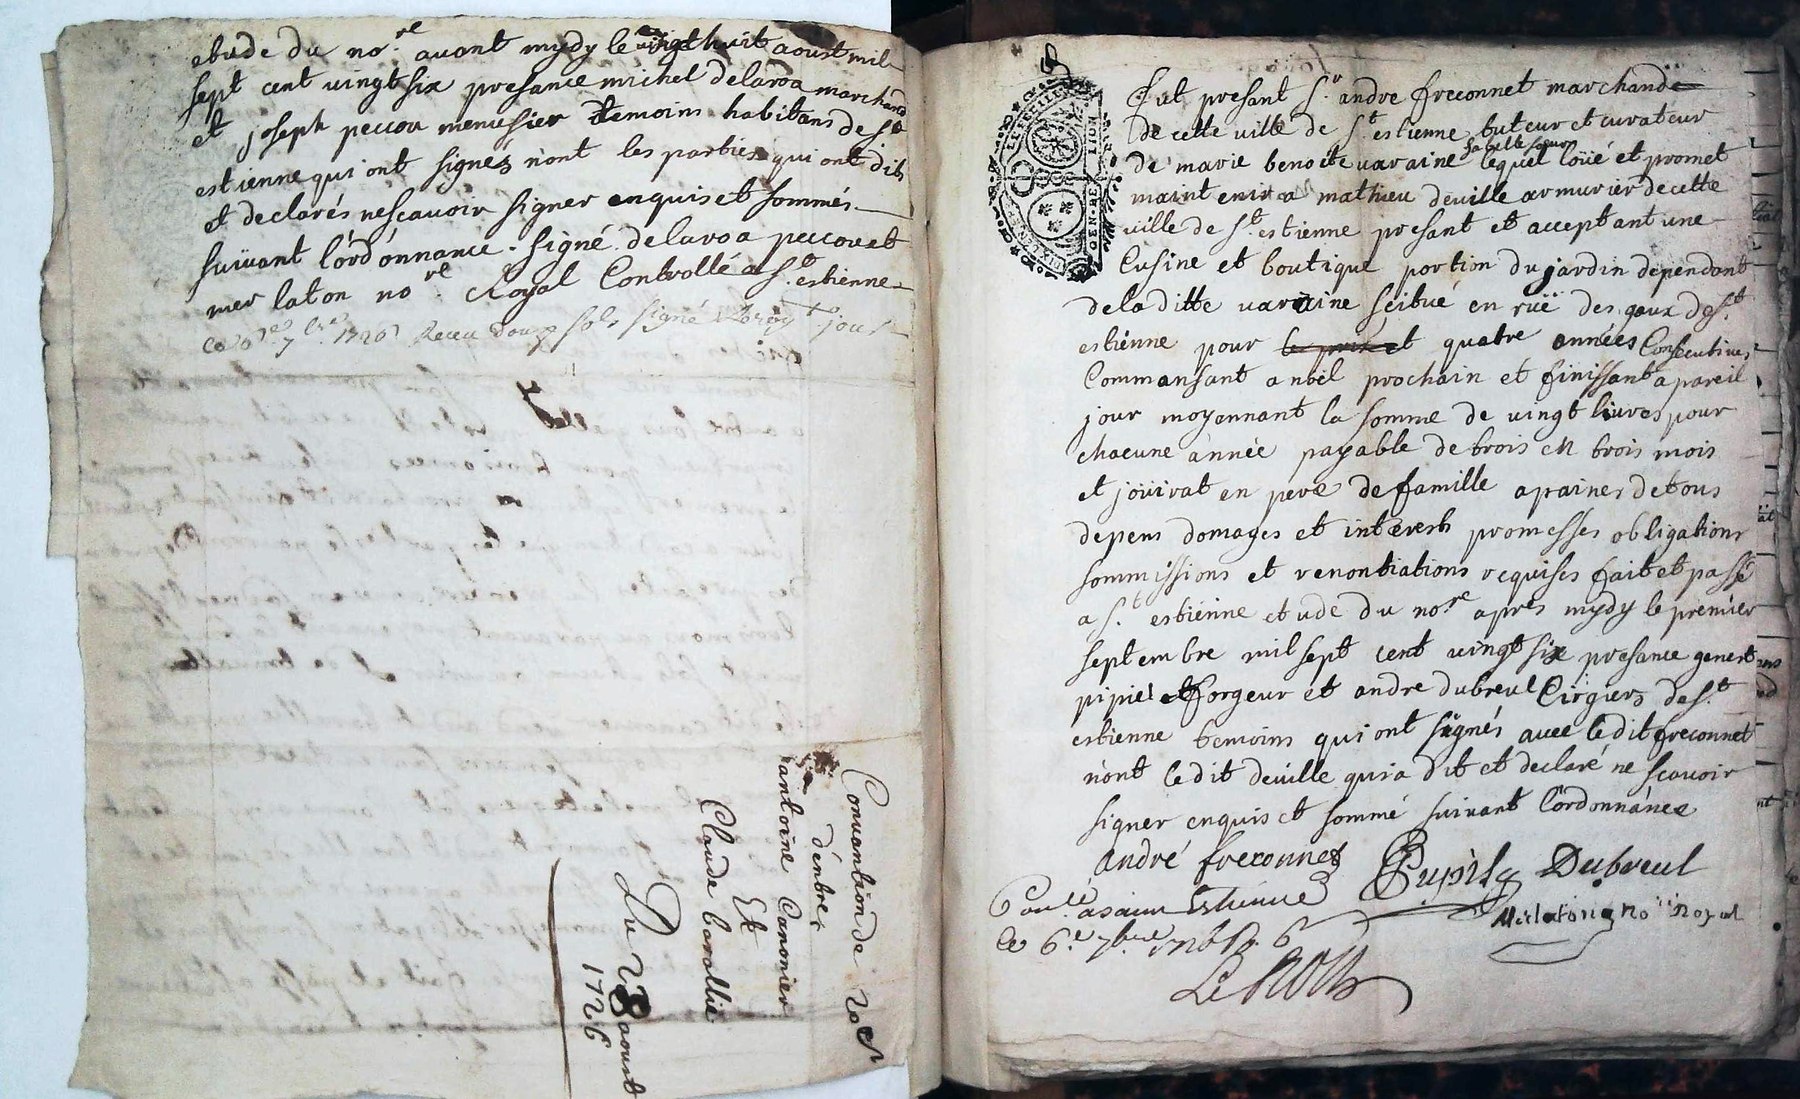 etude du no.re avant mydy le vingt huit aoust mil
sept cent vingt six presance michel delaroa marchand
et joseph peccou menusier temoins habitans de St
estienne qui ont signés n'ont les parties qui ont dit
et declarés ne scavoir signer enquis et sommés
suivant l'ordonnance. signé delaroa peccou et
merlaton no.re Royal Controllé a St estienne
ce 6e 7bre 1726 Receu douze sols signé
Convantion de
d'entre
antoine Canonier
Et
Claude barallie
Du 28 aoust
1726
LETFEUILLE
GEN·DE·LION
Fut presant Sr andre freconnet marchand
de cette ville de St estienne tuteur et curateur
de marie benoite varaine sa belle soeur lequel loüé et promet
maintenir a mathieu deville armurier de cette
ville de St estienne presant et acceptant une
Cusine et boutique portion du jardin dependant
de la ditte varaine scitué en ruë des gaux de St
estienne pour le prix et quatre années Consecutives
Commansant a noël prochain et finissant a pareil
jour moyennant la somme de vingt livres pour
chacune année payable de trois en trois mois
et joüirat en pere de famille a paines de tous
depens domages et interests promesses obligations
sommissions et renontiations requises fait et passé
a St estienne etude du no.re apres mydy le premier
septembre mil sept cent vingt six presance genest
pipiel forgeur et andre dubreul Cirgiers de St
estienne temoins qui ont signés avec ledit freconnet
n'ont ledit deville qui a dit et declaré ne scavoir
signer enquis et sommé suivant l'ordonnance
andré freconnet Dubreul
Merlaton no.re Royal
Con.lé a saint Estienne
ce 6e 7bre 1726 R. 6 s